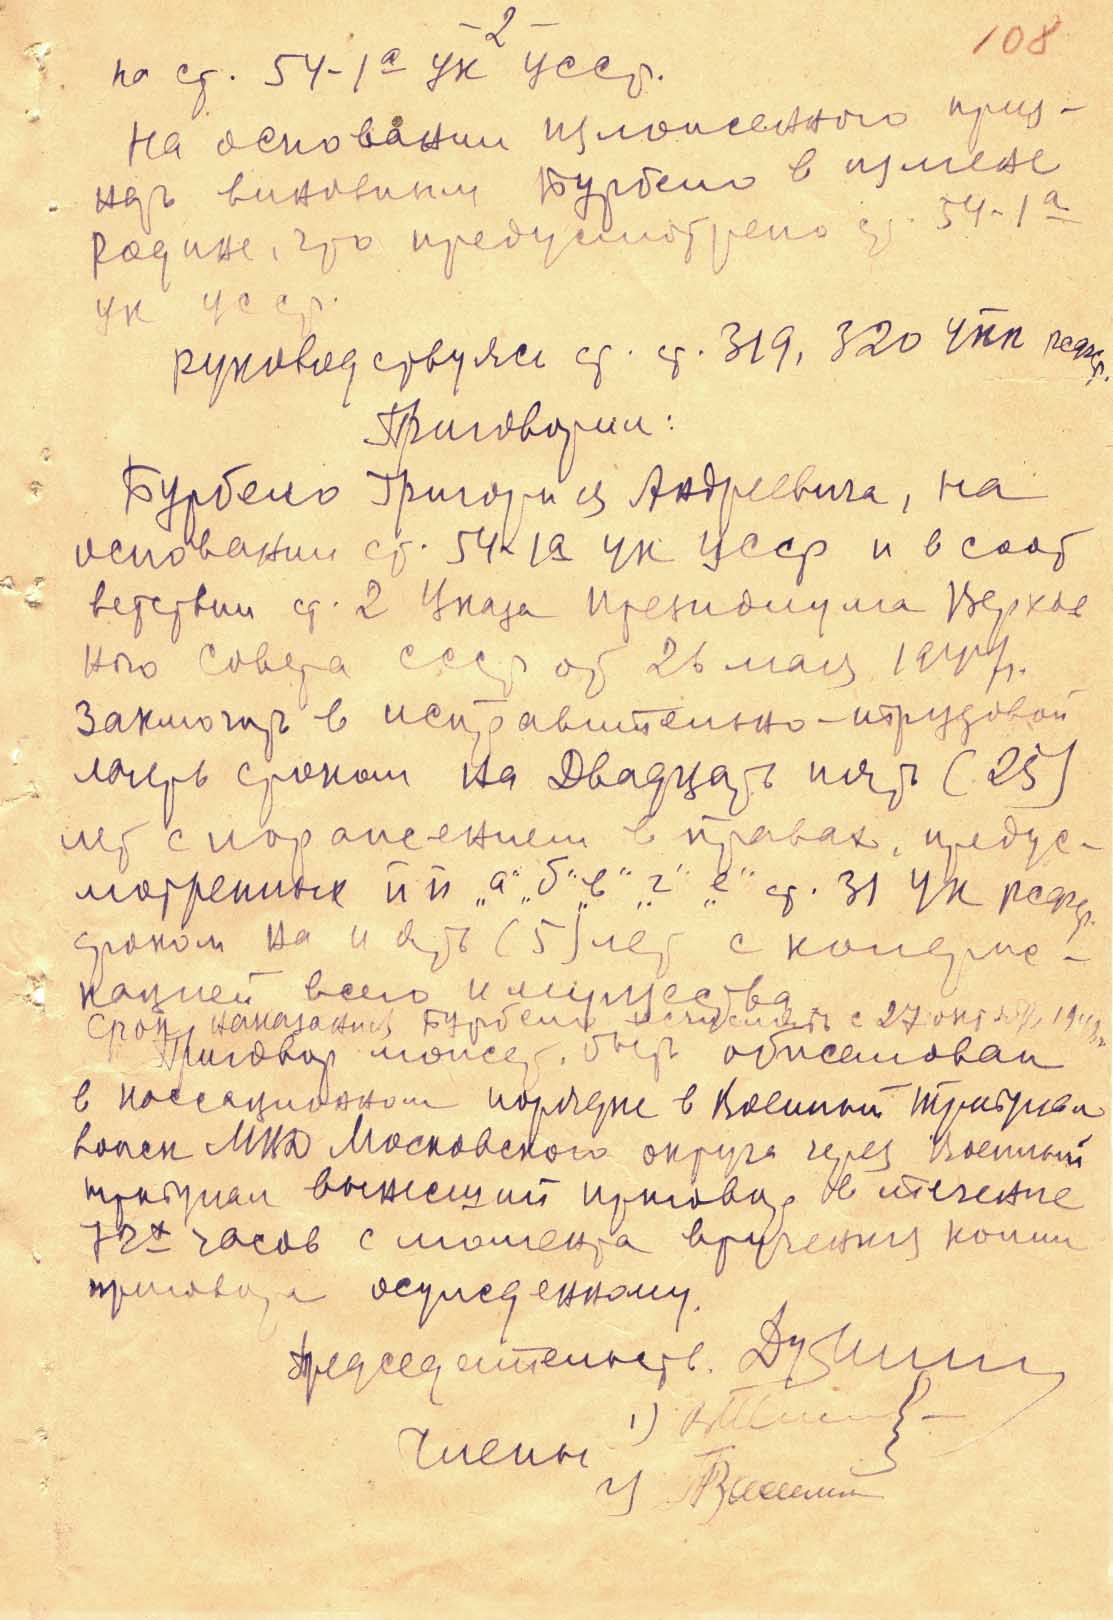 -2-
108
на ст. 54-1а УК УССР.
На основании изложенного приз-
нать виновным Бурбело в измене
Родине, что предусмотрено ст. 54-1а
УК УССР.
Руководствуясь ст. ст. 319, 320 УПК РСФСР.
Приговорил:
Бурбело Григория Андреевича, на
основании ст. 54-1а УК УССР и в соот
ветствии ст. 2 Указа Президиума Верхов
ного Совета СССР от 26 мая 1947 г.
Заключить в исправительно-трудовой
лагерь сроком на Двадцать пять (25)
лет с поражением в правах, предус-
мотренных п п „а" „б" „в" „г" „е" ст. 31 УК РСФСР.
сроком на пять (5) лет с конфис-
кацией всего имущества
Срок наказания Бурбело исчислять с 27 октября
Приговор может быть обжалован
в кассационном порядке в Военный Трибунал
войск МВД Московского округа через Военный
трибунал вынесший приговор в течение
72х часов с момента вручения копии
приговора осужденному.
Председательств.
Члены 1)
2)